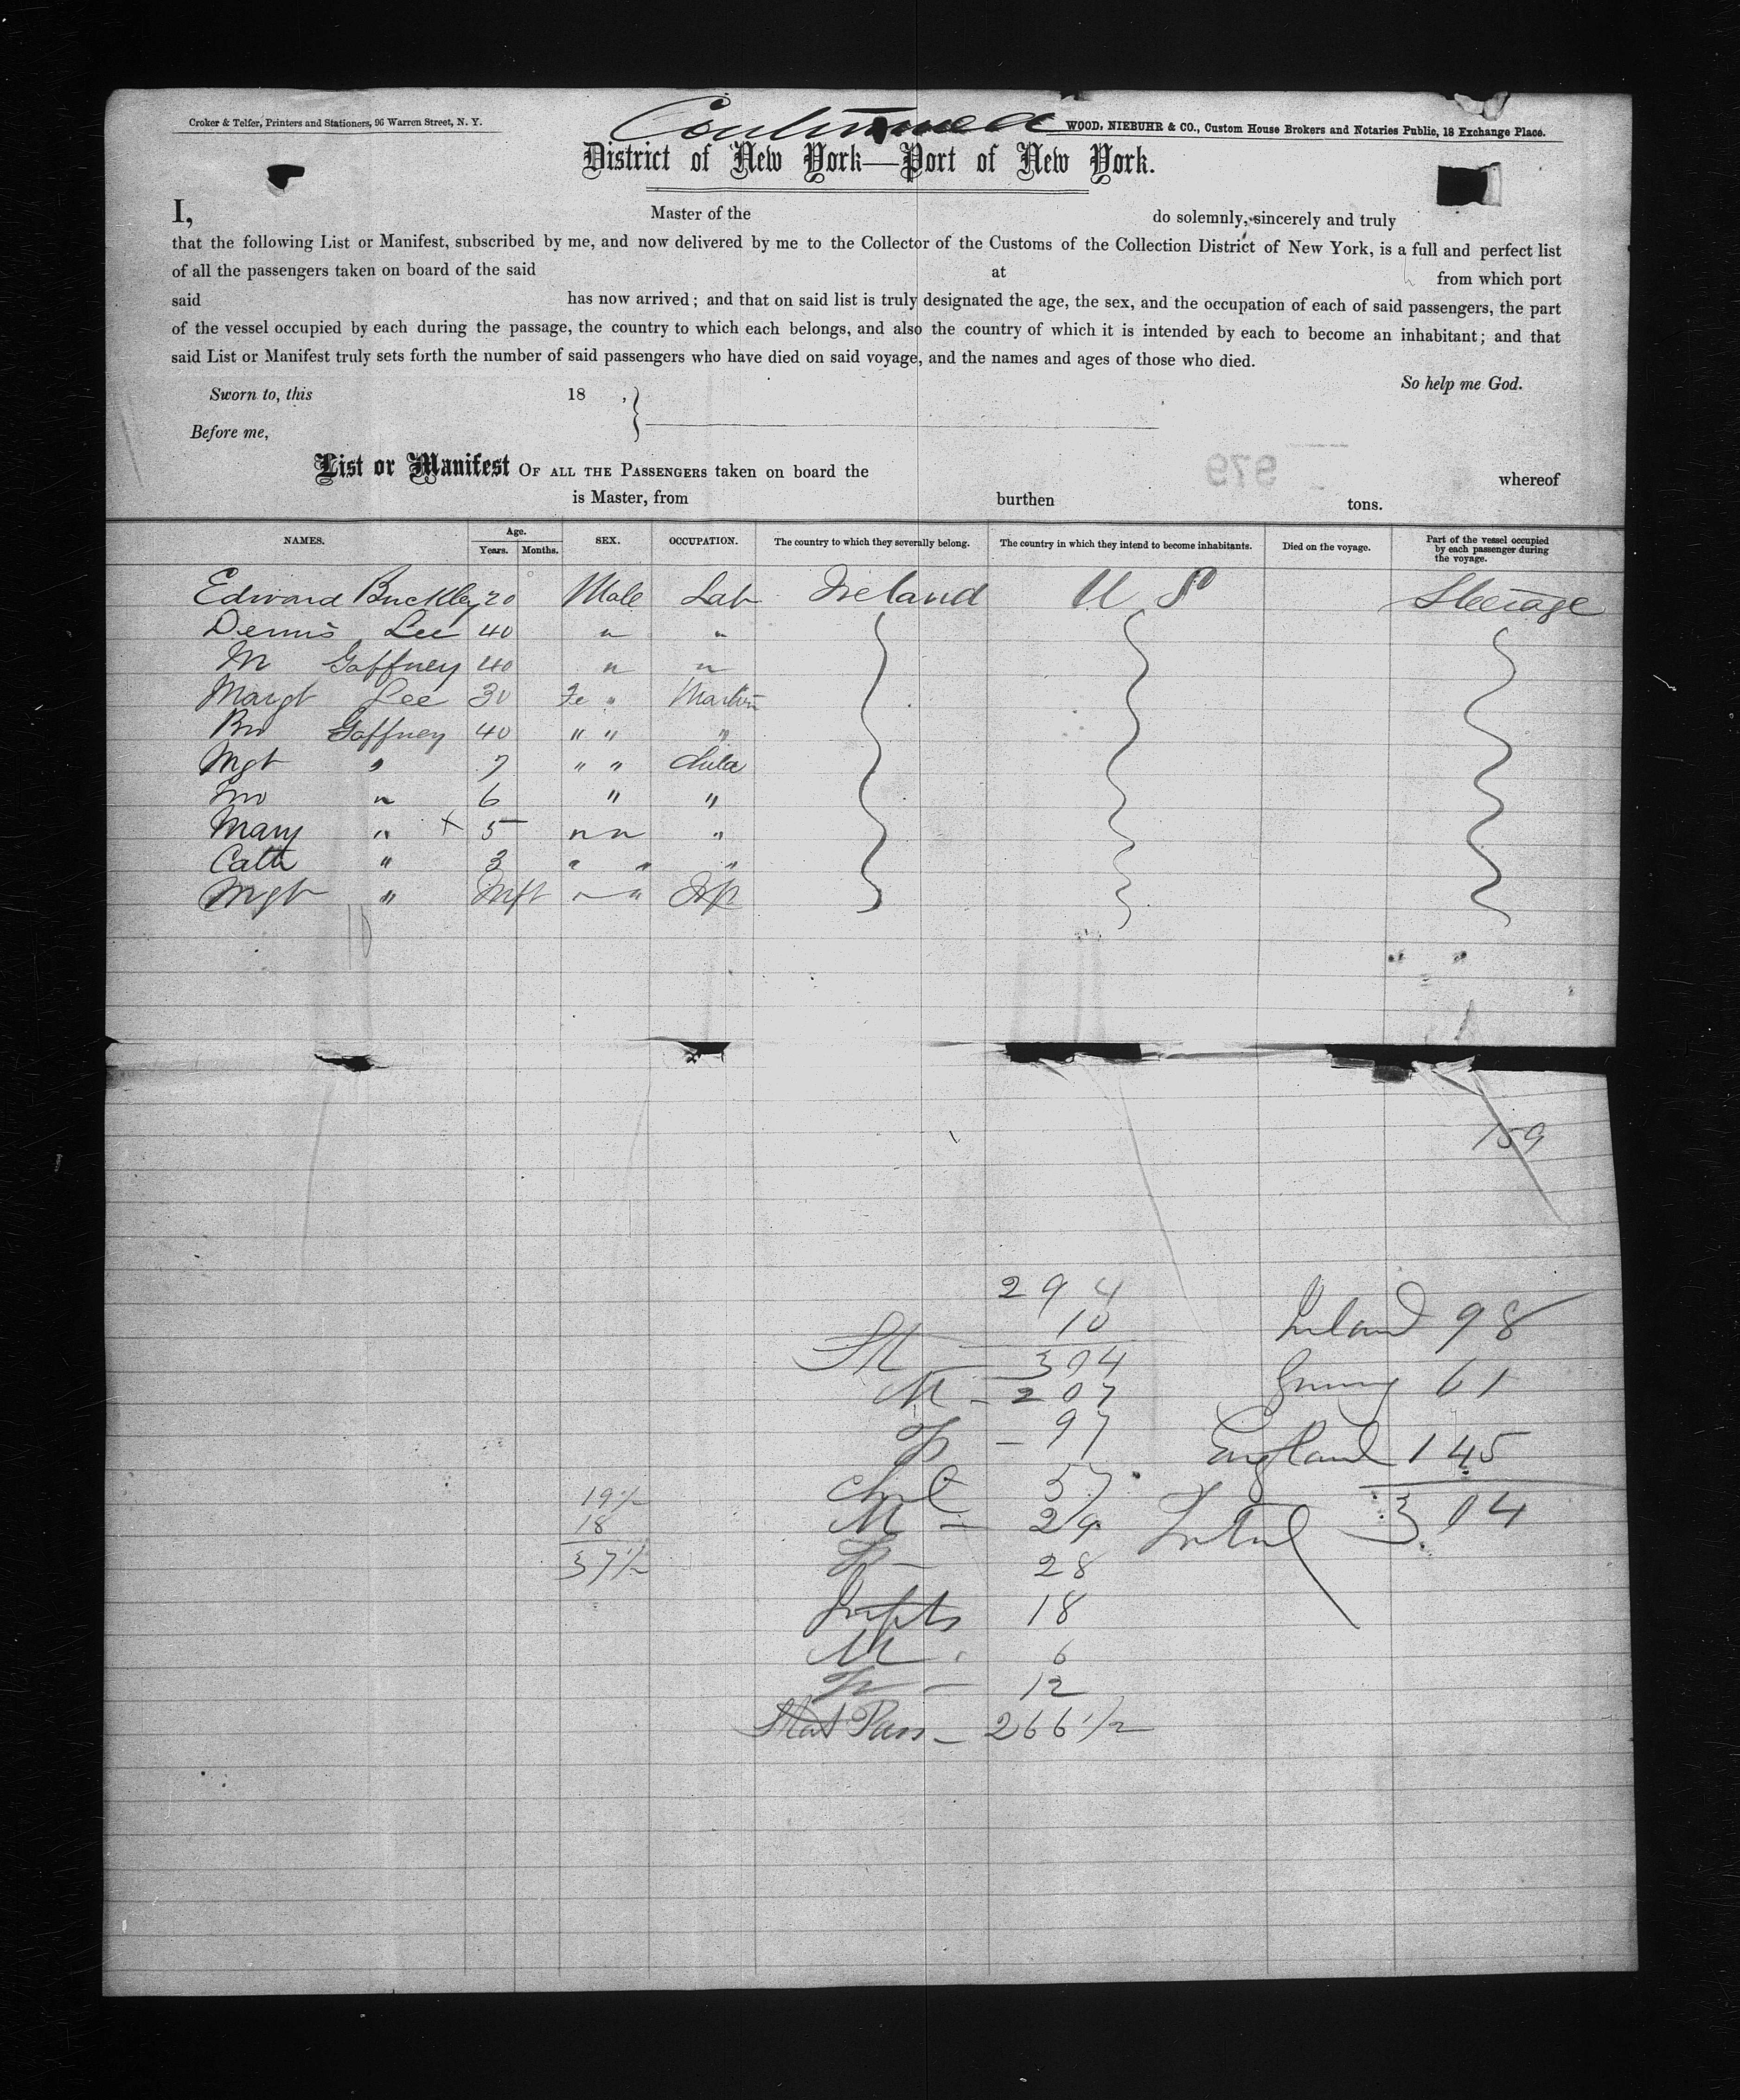 Continued
Croker & Telfer, Printers and Stationers, 96 Warren Street, N. Y.
WOOD, NIEBUHR & CO., Custom House Brokers and Notaries Public, 18 Exchange Place.
District of New York—Port of New York.
I, Master of the do solemnly, sincerely and truly
that the following List or Manifest, subscribed by me, and now delivered by me to the Collector of the Customs of the Collection District of New York, is a full and perfect list
of all the passengers taken on board of the said at from which port
said has now arrived; and that on said list is truly designated the age, the sex, and the occupation of each of said passengers, the part
of the vessel occupied by each during the passage, the country to which each belongs, and also the country of which it is intended by each to become an inhabitant; and that
said List or Manifest truly sets forth the number of said passengers who have died on said voyage, and the names and ages of those who died.
So help me God.
Sworn to, this 18 ,
Before me,
979
List or Manifest OF ALL THE PASSENGERS taken on board the whereof
is Master, from burthen tons.
NAMES. Age. Years. Months. SEX. OCCUPATION. The country to which they severally belong. The country in which they intend to become inhabitants. Died on the voyage. Part of the vessel occupied by each passenger during the voyage.
Edward Buckley 20 Male Lab Ireland U S Steerage
Dennis Lee 40 " "
M Gaffney 40 " "
Margt Lee 30 Fe "
Gaffney 40 " " "
Mgt " 7 " " Child
" 6 " "
Mary " x 5 " " "
Cath " 3 " " "
Mgt " Inft " " Inf
10
159
294
10
St — 304
M — 207
F — 97
Chil 57
M — 29
F — 28
Infts 18
M 6
F — 12
Stat Pass — 266 1/2
19 1/2
18
37 1/2
Ireland 98
Germy 61
England 145
Total 304